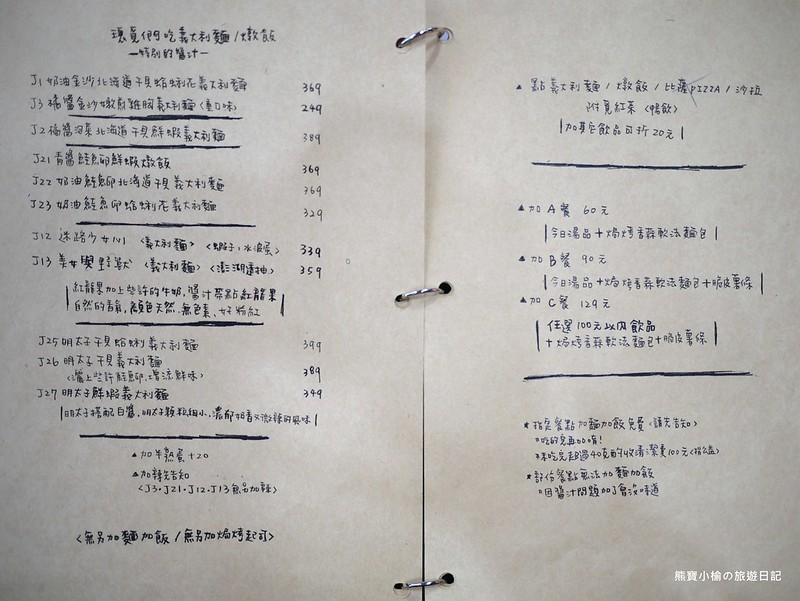 我們吃義大利麵/燉飯
—特別的醬汁—
J1 奶油金沙北海道干貝蛤蜊花義大利麵 369
J3 橘醬金沙嫩煎雞胸義大利麵〈重口味〉 249
J2 橘醬泡菜北海道干貝鮮蝦義大利麵 389
J21 青醬鮭魚卵鮮蝦燉飯 369
J22 奶油鮭魚卵北海道干貝義大利麵 369
J23 奶油鮭魚卵蛤蜊花義大利麵 329
J12 迷路少女心〈義大利麵〉〈蝦子,水波蛋〉 339
J13 美女與野獸〈義大利麵〉〈澎湖透抽〉 359
紅龍果加上些許的牛奶,醬汁帶點紅龍果
自然的香氣,顏色天然,無色素,女子粉紅
J25 明太子干貝蛤蜊義大利麵 399
J26 明太子干貝義大利麵 389
〈灑上些許鮭魚卵,增添鮮味〉
J27 明太子鮮蝦義大利麵 349
明太子搭配白醬,明太子顆粒細小,濃郁甜香又微辣的風味
▲加半熟蛋+20
▲加辣先告知
〈J3·J21·J12·J13無另加辣〉
〈無另加麵加飯/無另加焗烤起司〉
▲ 點義大利麵/燉飯/比薩PIZZA/沙拉
附夏紅茶〈暢飲〉
加其它飲品可折20元
▲加A餐 60元
今日湯品+焗烤香蒜軟法麵包
▲加B餐 90元
今日湯品+焗烤香蒜軟法麵包+脆皮薯條
▲加C餐 129元
任選100元以內飲品
+焗烤香蒜軟法麵包+脆皮薯條
*指定餐點加麵加飯免費〈請先告知〉
吃的完再加唷!
沒吃完超過40克酌收清潔費100元〈捐公益〉
*部份餐點無法加麵加飯
因醬汁問題加了會沒味道
熊寶小榆の旅遊日記